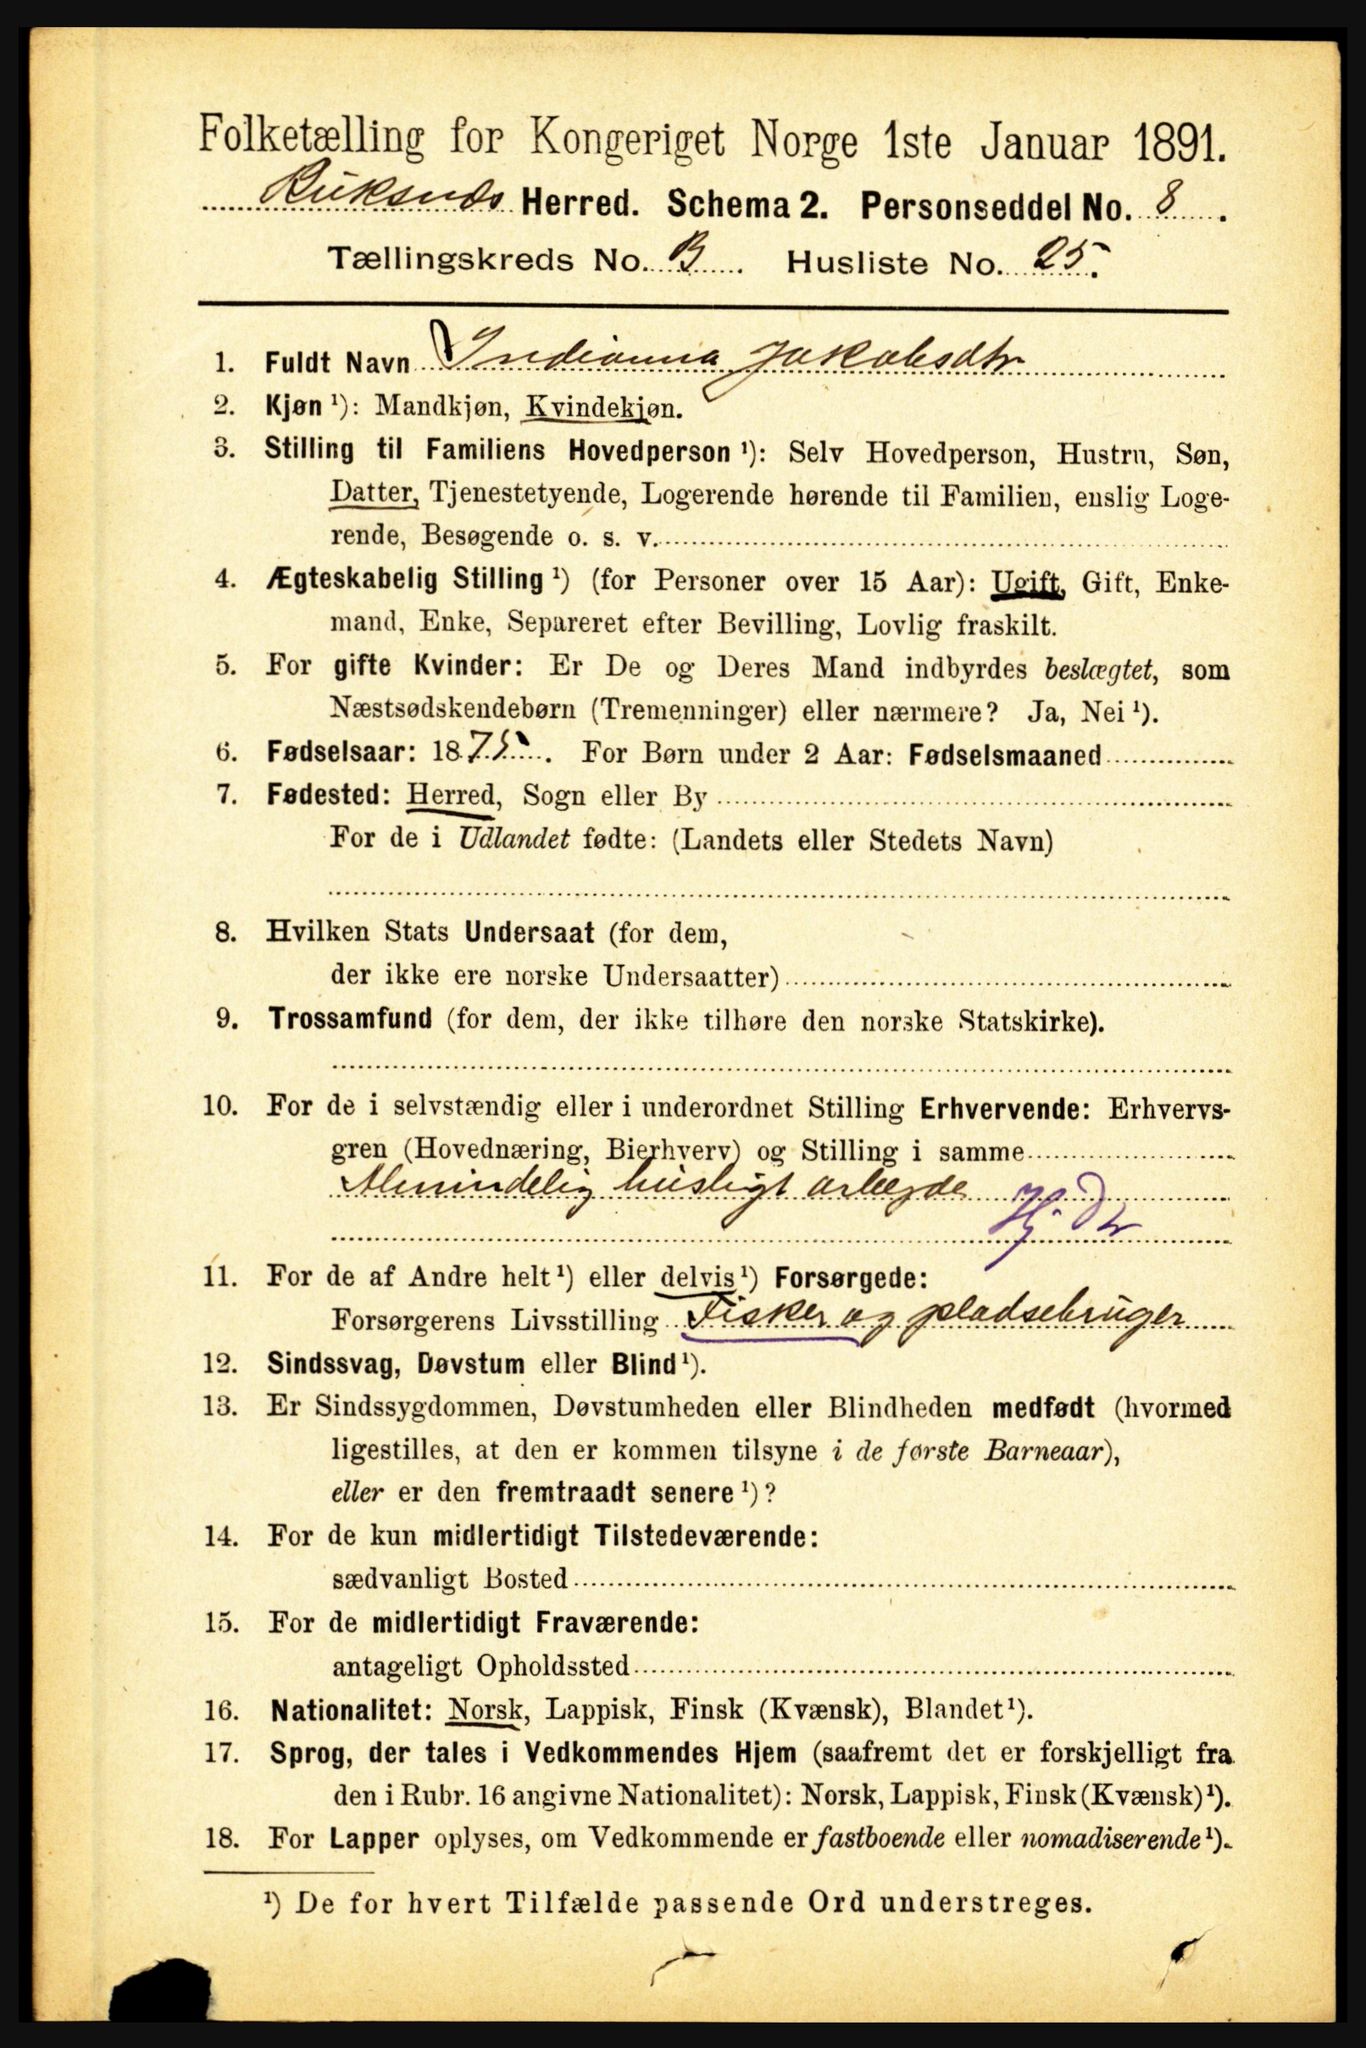 Folketælling for Kongeriget Norge 1ste Januar 1891.
Buksnæs Herred. Schema 2. Personseddel No. 8.
Tællingskreds No. B. Husliste No. 25.
1. Fuldt Navn Indianna Jakobsdtr
2. Kjøn ¹): Mandkjøn, Kvindekjøn.
3. Stilling til Familiens Hovedperson ¹): Selv Hovedperson, Hustru, Søn,
Datter, Tjenestetyende, Logerende hørende til Familien, enslig Loge-
rende, Besøgende o. s. v.
4. Ægteskabelig Stilling ¹) (for Personer over 15 Aar): Ugift, Gift, Enke-
mand, Enke, Separeret efter Bevilling, Lovlig fraskilt.
5. For gifte Kvinder: Er De og Deres Mand indbyrdes beslægtet, som
Næstsødskendebørn (Tremenninger) eller nærmere? Ja, Nei ¹).
6. Fødselsaar: 1875. For Børn under 2 Aar: Fødselsmaaned
7. Fødested: Herred, Sogn eller By
For de i Udlandet fødte: (Landets eller Stedets Navn)
8. Hvilken Stats Undersaat (for dem,
der ikke ere norske Undersaatter)
9. Trossamfund (for dem, der ikke tilhøre den norske Statskirke).
10. For de i selvstændig eller i underordnet Stilling Erhvervende: Erhvervs-
gren (Hovednæring, Bierhverv) og Stilling i samme
Almindelig husligt arbejde
Hj. Dr
11. For de af Andre helt ¹) eller delvis ¹) Forsørgede:
Forsørgerens Livsstilling Fisker og pladsebruger
12. Sindssvag, Døvstum eller Blind ¹).
13. Er Sindssygdommen, Døvstumheden eller Blindheden medfødt (hvormed
ligestilles, at den er kommen tilsyne i de første Barneaar),
eller er den fremtraadt senere ¹)?
14. For de kun midlertidigt Tilstedeværende:
sædvanligt Bosted
15. For de midlertidigt Fraværende:
antageligt Opholdssted
16. Nationalitet: Norsk, Lappisk, Finsk (Kvænsk), Blandet ¹).
17. Sprog, der tales i Vedkommendes Hjem (saafremt det er forskjelligt fra
den i Rubr. 16 angivne Nationalitet): Norsk, Lappisk, Finsk (Kvænsk) ¹).
18. For Lapper oplyses, om Vedkommende er fastboende eller nomadiserende ¹).
¹) De for hvert Tilfælde passende Ord understreges.